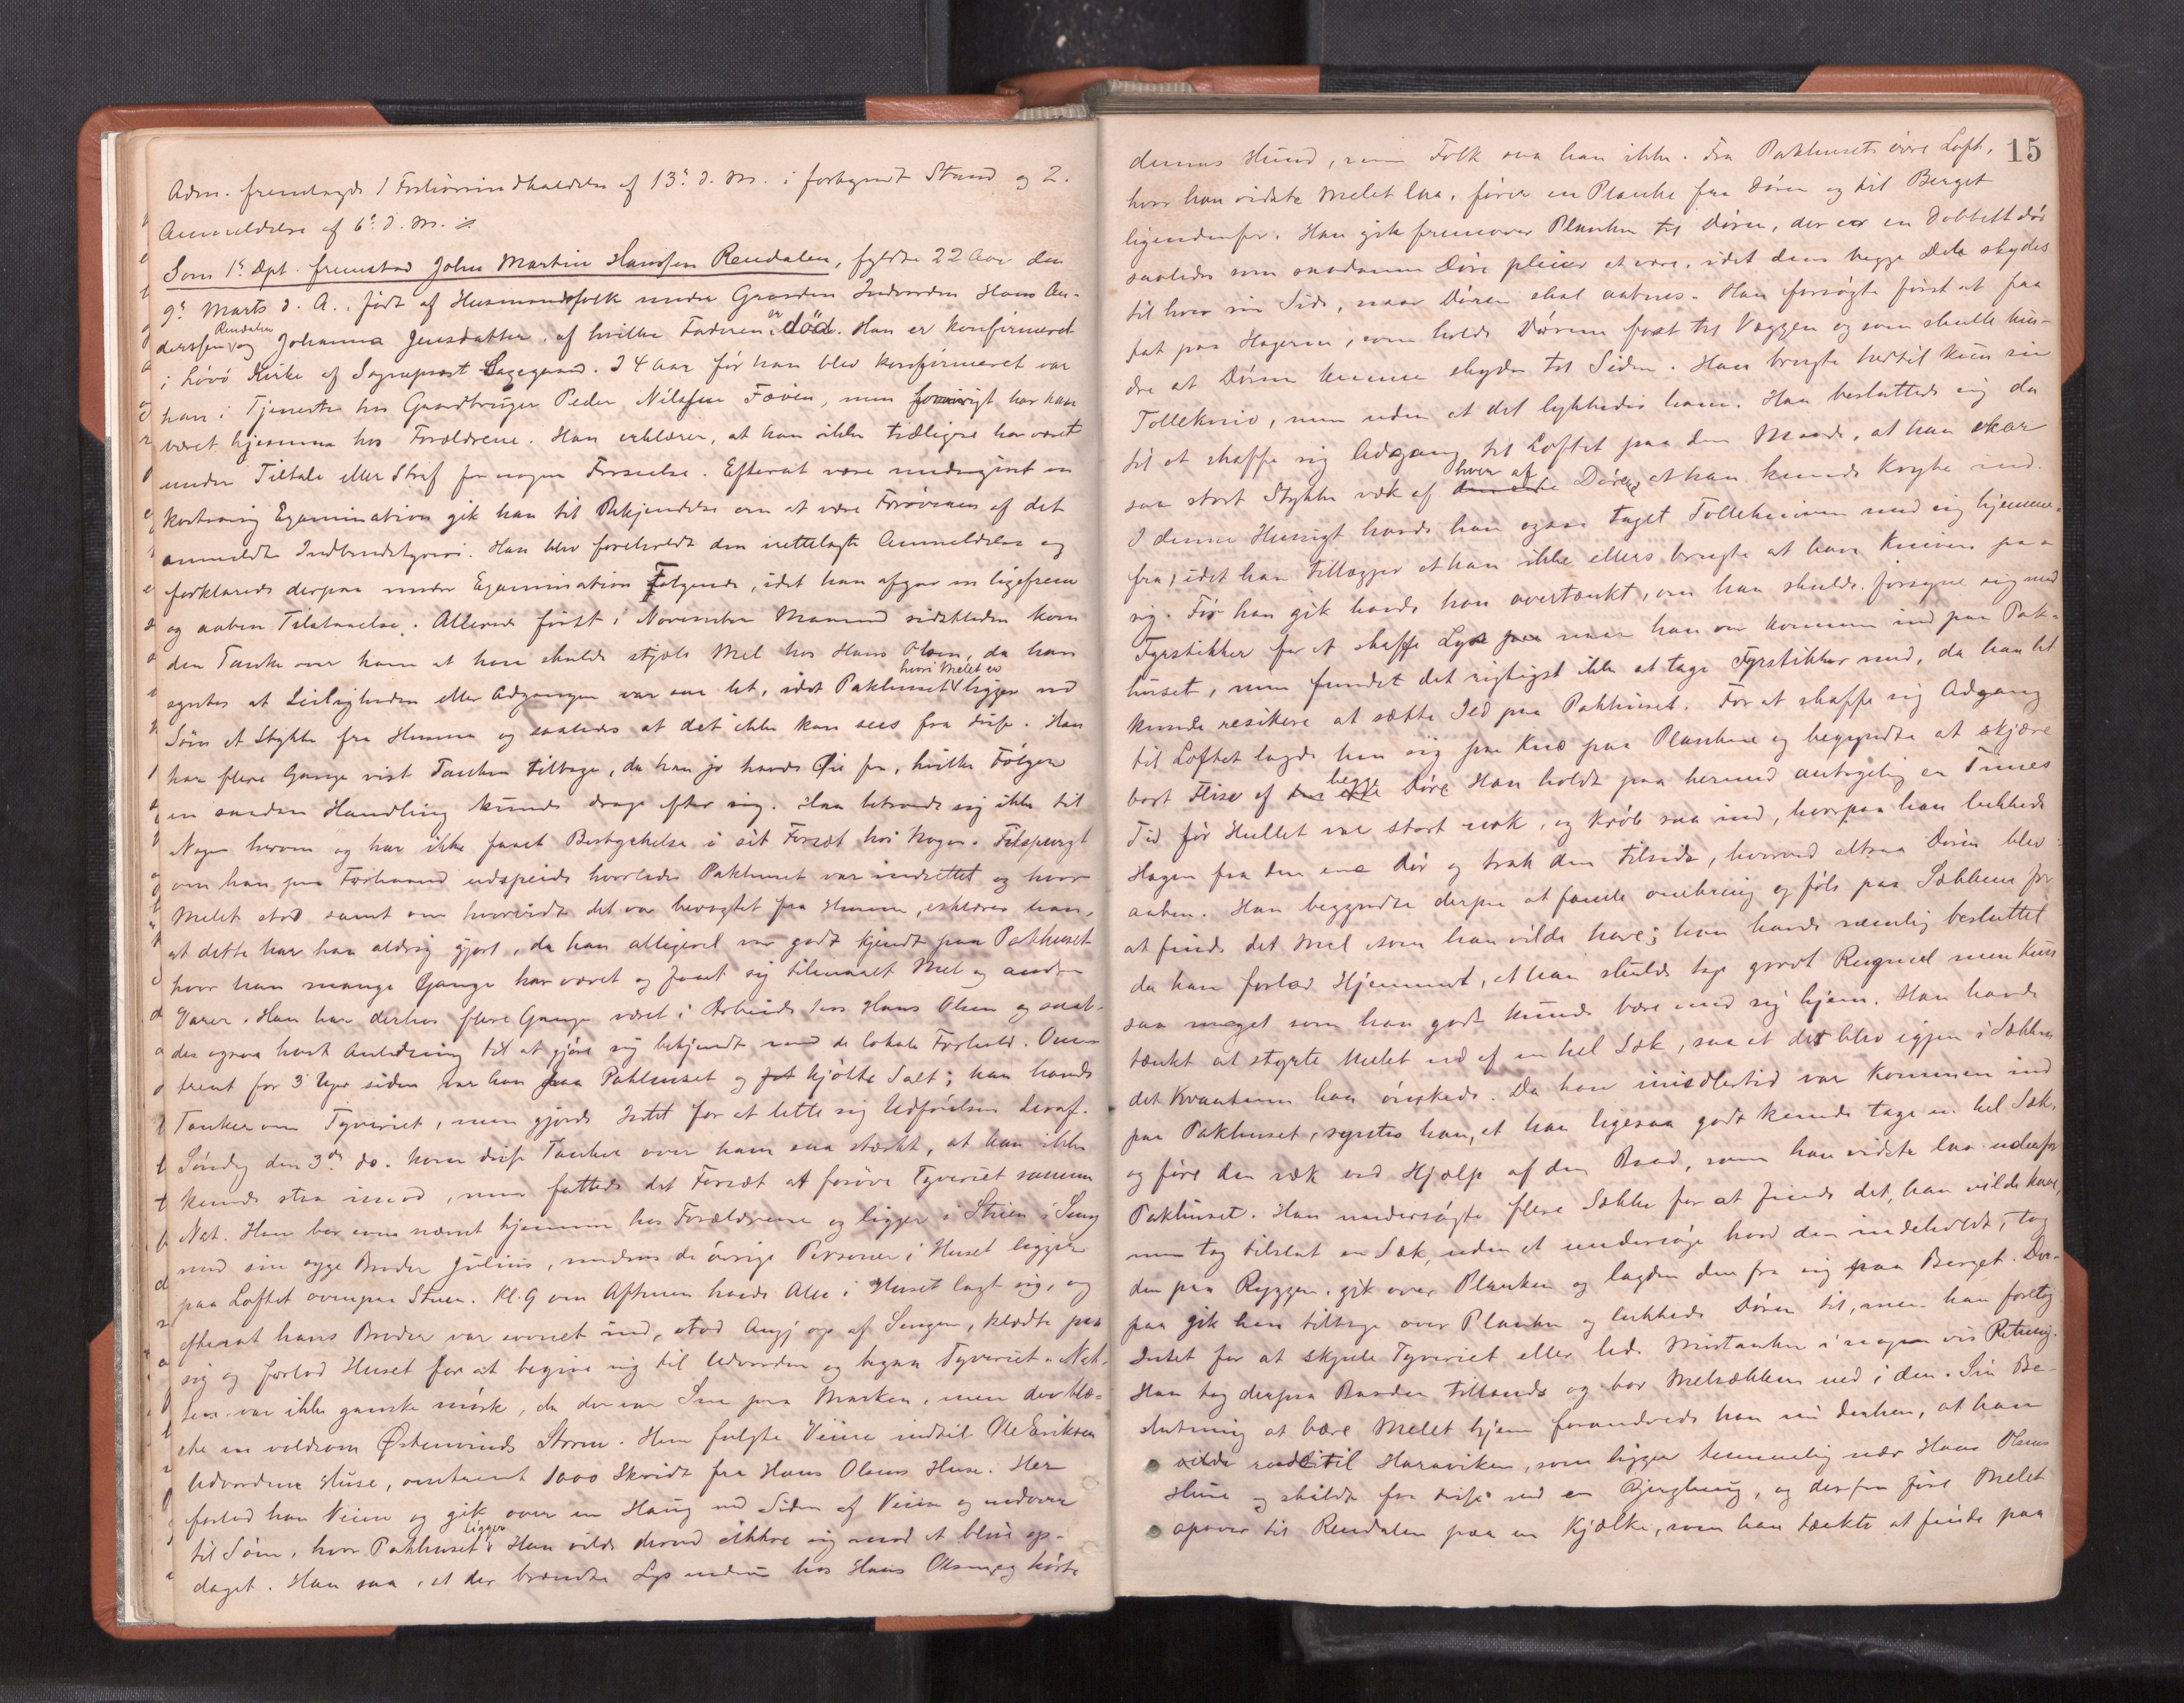 Adm. fremlagde 1 Forhørsindkaldelse af 13de d. M. i forkyndt Stand og 2.
Anmeldelse af 6te d. M.
Som 1ste Dpt. fremstod John Martin Hansen Rendalen, fyldte 22 Aar den
9de Marts d. A., født af Husmandsfolk under Gaarden Indvorden Hans An-
derssen Rendalen og Johanna Jensdatter, af hvilke Faderen er død. Han er konfirmeret
i Løvø Kirke af Sogneprest Lagegaard. I 4 Aar før han blev konfirmeret var
han i Tjeneste hos Gaardbruger Peder Nilssen Føvin, men forøvrigt har han
været hjemme hos Forældrene. Han erklærer, at han ikke tidligere har været
under Tiltale eller Straf for nogen Forseelse. Efterat være undergivet en
kortvarig Examination gik han til Bekjendelse om at være Forøveren af det
anmeldte Indbrudstyveri. Han blev foreholdt den irettelagte Anmeldelse og
forklarede derpaa under Examination Følgende, idet han afgav en ligefrem
og aaben Tilstaaelse. Allerede først i November Maaned sidstleden kom
den Tanke over ham at han skulde stjæle Mel hos Hans Olsen, da han
syntes at Leiligheden eller Adgangen var saa let, idet Pakhuset hvori Melet er ligger ved
Søen et Stykke fra Husene og saaledes at det ikke kan sees fra disse. Han
har flere Gange vist Tanken tilbage, da han jo havde Øie for, hvilke Følger
en saadan Handling kunde drage efter sig. Han betroede sig ikke til
Nogen herom og har ikke faaet Bestyrkelse i sit Forsæt hos Nogen. Tilspurgt
om han paa Forhaand udspeide hvorledes Pakhuset var indrettet og hvor
Melet stod samt om hvorvidt det var bevogtet fra Husene, erklærer han,
at dette har han aldrig gjort, da han alligevel var godt kjendt paa Pakhuset
hvor han mange Gange har været og faaet sig tilmaalt Mel og andre
Varer. Han har derhos flere Gange været i Arbeide hos Hans Olsen og saale-
des ogsaa havt Anledning til at gjøre sig bekjendt med de lokale Forhold. Om-
trent for 3 Uger siden var han paa Pakhuset og kjøbte Salt; han havde
Tanke om Tyveriet, men gjorde Intet for at lette sig Udførelsen deraf.
Søndag den 3die do. kom disse Tanker over ham saa stærkt, at han ikke
kunde staa imod, men fattede det Forsæt at forøve Tyveriet samme
Nat. Han bor som nævnt hjemme hos Forældrene og ligger i Stuen i Seng
med sin syge Broder Julius, medens de øvrige Personer i Huset ligger
paa Loftet ovenpaa Stuen. Kl. 9 om Aftenen havde Alle i Huset lagt sig, og
efterat hans Broder var sovnet ind, stod Angj. op af Sengen, klædte paa
sig og forlod Huset for at begive sig til Udvorden og begaa Tyveriet. Nat-
ten var ikke ganske mørk, da der var Sne paa Marken, men der blæ-
ste en voldsom Østenvinds Storm. Han fulgte Veien indtil Ole Eriksen
Udvordens Huse, omtrent 1000 Skridt fra Hans Olsens Huse. Her
forlod han Veien og gik over en Haug ved Siden af Veien og nedover
til Søen, hvor Pakhuset ligger. Han vilde derved sikkre sig mod at blive op-
daget. Han saa, at der brændte Lys inde hos Hans Olsen, og hørte
15
dennes Hund, men Folk saa han ikke. Fra Pakhusets øvre Loft,
hvor han vidste Melet laa, fører en Planke fra Døren og til Berget
ligeudenfor. Han gik fremover Planken til Døren, der er en dobbelt Dør
saaledes som saadanne Døre pleier at være, idet dens begge Dele skydes
til hver sin Side, naar Døren skal aabnes. Han forsøgte først at faa
fat paa Hagerne, som holde Dørene fast til Væggen og som skulle hin-
dre at Dørene kunne skydes til Siden. Han brugte hertil kun sin
Tollekniv, men uden at det lykkedes ham. Han besluttede sig da
til at skaffe sig Adgang til Loftet paa den Maade, at han skar
saa stort Stykke væk af hver af Dørene, at han kunde krybe ind.
I denne Hensigt havde han ogsaa taget Tollekniven med sig hjemme-
fra, idet han tillægger at han ikke ellers brugte at have Kniven paa
sig. Før han gik havde han overtænkt, om han skulde forsyne sig med
Fyrstikker for at skaffe Lys naar han var kommen ind paa Pak-
huset, men fundet det rigtigst ikke at tage Fyrstikker med, da han let
kunde resikere at sætte Ild paa Pakhuset. For at skaffe sig Adgang
til Loftet lagde han sig paa Knæ paa Planken og begyndte at skjære
bort Fliser af begge Døre. Han holdt paa hermed antagelig en Times
Tid før Hullet var stort nok, og krøb saa ind, hvorpaa han lukkede
Hagen fra den ene Dør og trak den tilside, hvorved altsaa Døren blev
aaben. Han begyndte derpaa at famle omkring og føle paa Sækkene for
at finde det Mel som han vilde have; han havde nemlig besluttet
da han forlod Hjemmet, at han skulde tage grovt Rugmel men kun
saa meget som han godt kunde bære med sig hjem. Han havde
tænkt at styrte Melet ud af en hel Sæk, saa at det blev igjen i Sækken
det Kvantum han ønskede. Da han imidlertid var kommen ind
paa Pakhuset, syntes han, at han ligesaa godt kunde tage en hel Sæk
og føre den væk ved Hjælp af den Baad, som han vidste laa udenfor
Pakhuset. Han undersøgte flere Sække for at finde det, han vilde have,
men tog tilslut en Sæk, uden at undersøge hvad den indeholdt, tog
den paa Ryggen, gik over Planken og lagde den fra sig paa Berget. Der-
paa gik han tilbage over Planken og lukkede Døren til, men han foretog
Intet for at skjule Tyveriet eller lede Mistanken i nogen vis Retning.
Han tog derpaa Baaden tillands og bar Melsækken ned i den. Sin Be-
slutning at bære Melet hjem forandrede han nu derhen, at han
vilde ro det til Haraviken, som ligger temmelig nær Hans Olsens
Huse og skildt fra disse ved en Bjerghaug, og derfra føre Melet
opover til Rendalen paa en Kjælke, som han tænkte at finde paa